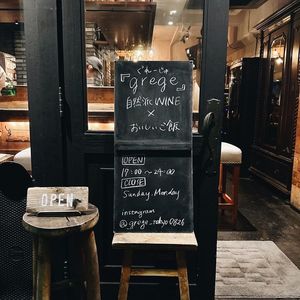 ぐれーじゅ
『grege』
自然派WINE
×
おいしいご飯
OPEN
17:00〜24:00
CLOSE
Sunday, Monday
instagram
@grege_tokyo0826
OPEN